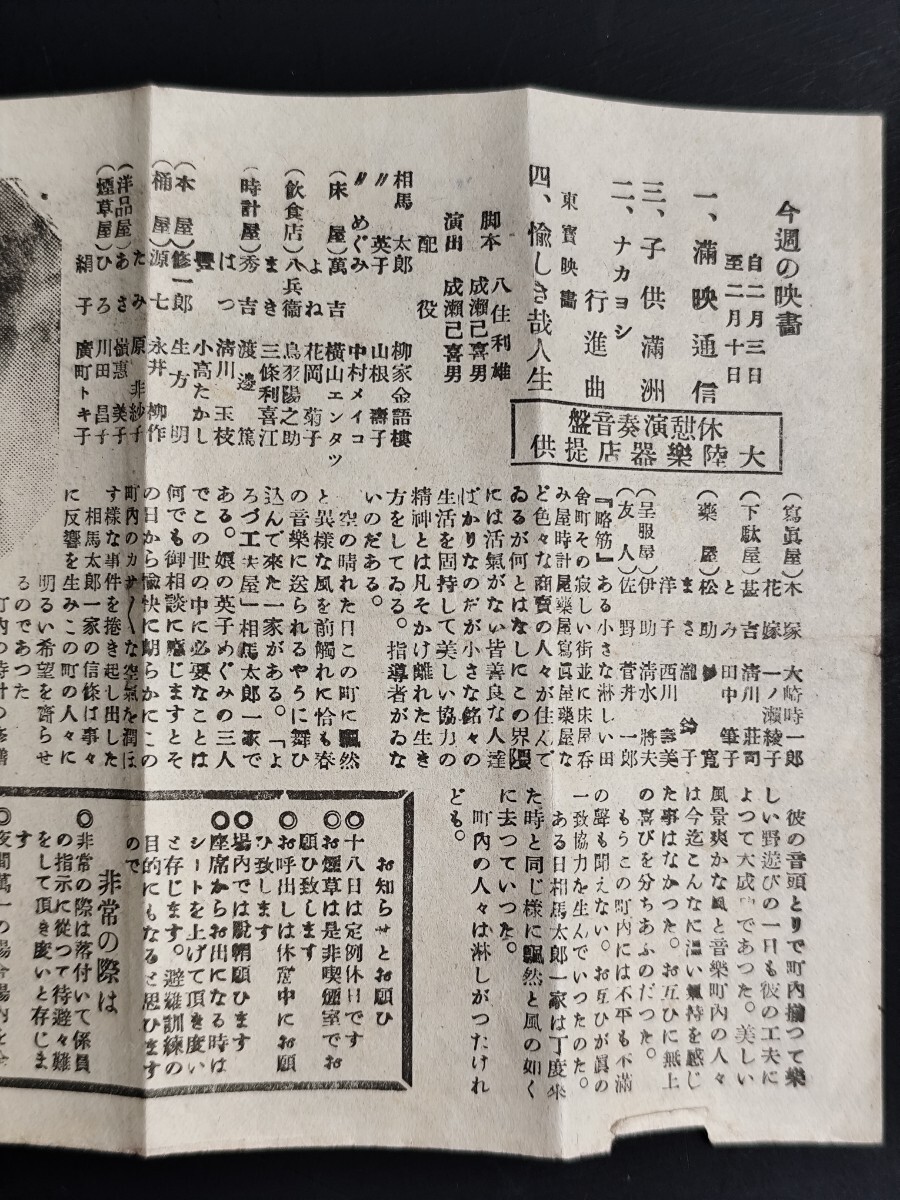 今週の映畵
自二月三日
至二月十日
一、滿映通信
三、子供滿洲
二、ナカヨシ行進曲
東寶映畵
四、愉しき哉人生
脚本 八住利雄
成瀨己喜男
演出 成瀨己喜男
配役
相馬太郎 柳家金語樓
〃英子 山根壽子
〃めぐみ 中村メイコ
(床屋)萬吉 橫山エンタツ
よね 花岡菊子
(飲食店)八兵衞 鳥羽陽之助
まき 三條利喜江
(時計屋)秀吉 渡邊篤
はつ 淸川玉枝
豐 小高たかし
(本屋)修一郎 生方明
(桶屋)源七 永井柳作
たみ 原緋紗子
(洋品屋)あさ 嶺惠美子
(煙草屋)ひろ 川田昌子
絹子 廣町トキ子
休憩演奏音盤
大陸樂器店提供
(寫眞屋)木塚 大崎時一郎
花嫁 一ノ瀨綾子
(下駄屋)甚吉 淸川莊司
とみ 田中筆子
(藥屋)松助 寬
まさ 瀧鈴子
洋子 西川壽美
(呉服屋)伊助 淸水將夫
(友人)佐野 菅井一郎
『略筋』ある小さな淋しい田
舍町その寂しい街並に床屋呑
み屋時計屋藥屋寫眞屋藥屋な
ど色々な商賣の人々が住んで
ゐるが何とはなしにこの界隈
には活氣がない皆善良な人達
ばかりなのだが小さな銘々の
生活を固持して美しい協力の
精神とは凡そかけ離れた生き
方をしてゐる。指導者がゐな
いのだある。
空の晴れた日この町に飄然
と異樣な風を前觸れに恰も春
の音樂に送られるやうに舞ひ
込んで來た一家がある。「よ
ろづ工夫屋」相馬太郎一家で
ある。娘の英子めぐみの三人
でこの世の中に必要なことは
何でも御相談に應じますとそ
の日から愉快に朗らかにこの
町內のカサ〱な空氣を潤ほ
す樣な事件を捲き起し出した
相馬太郎一家の信條は事々
に反響を生みこの町の人々に
明るい希望を齎らせ
るのであつた
町內の時計の修繕
彼の音頭とりで町內揃つて樂
しい野遊びの一日も彼の工夫に
よつて大成功であつた。美しい
風景爽かな風と音樂町內の人々
は今迄こんなに溫い氣持を感じ
た事はなかつた。お互ひに無上
の喜びを分ちあふのだつた。
もうこの町內には不平も不滿
の聲も聞えない。お互ひが眞の
一致協力を生んでいつたのた。
ある日相馬太郎一家は丁度來
た時と同じ樣に飄然と風の如く
に去つていつた。
町內の人々は淋しがつたけれ
ども。
お知らせとお願ひ
◎十八日は定例休日です
◎お煙草は是非喫煙室でお
願ひ致します
◎お呼出しは休憩中にお願
ひ致します
◎場內では脫帽願ひます
◎座席からお出になる時は
シートを上げて頂き度い
と存じます。避難訓練の
目的にもなると思ひます
ので
非常の際は
◎非常の際は落付いて係員
の指示に從つて待避々難
をして頂き度いと存じま
す
◎夜間萬一の場合場內を全